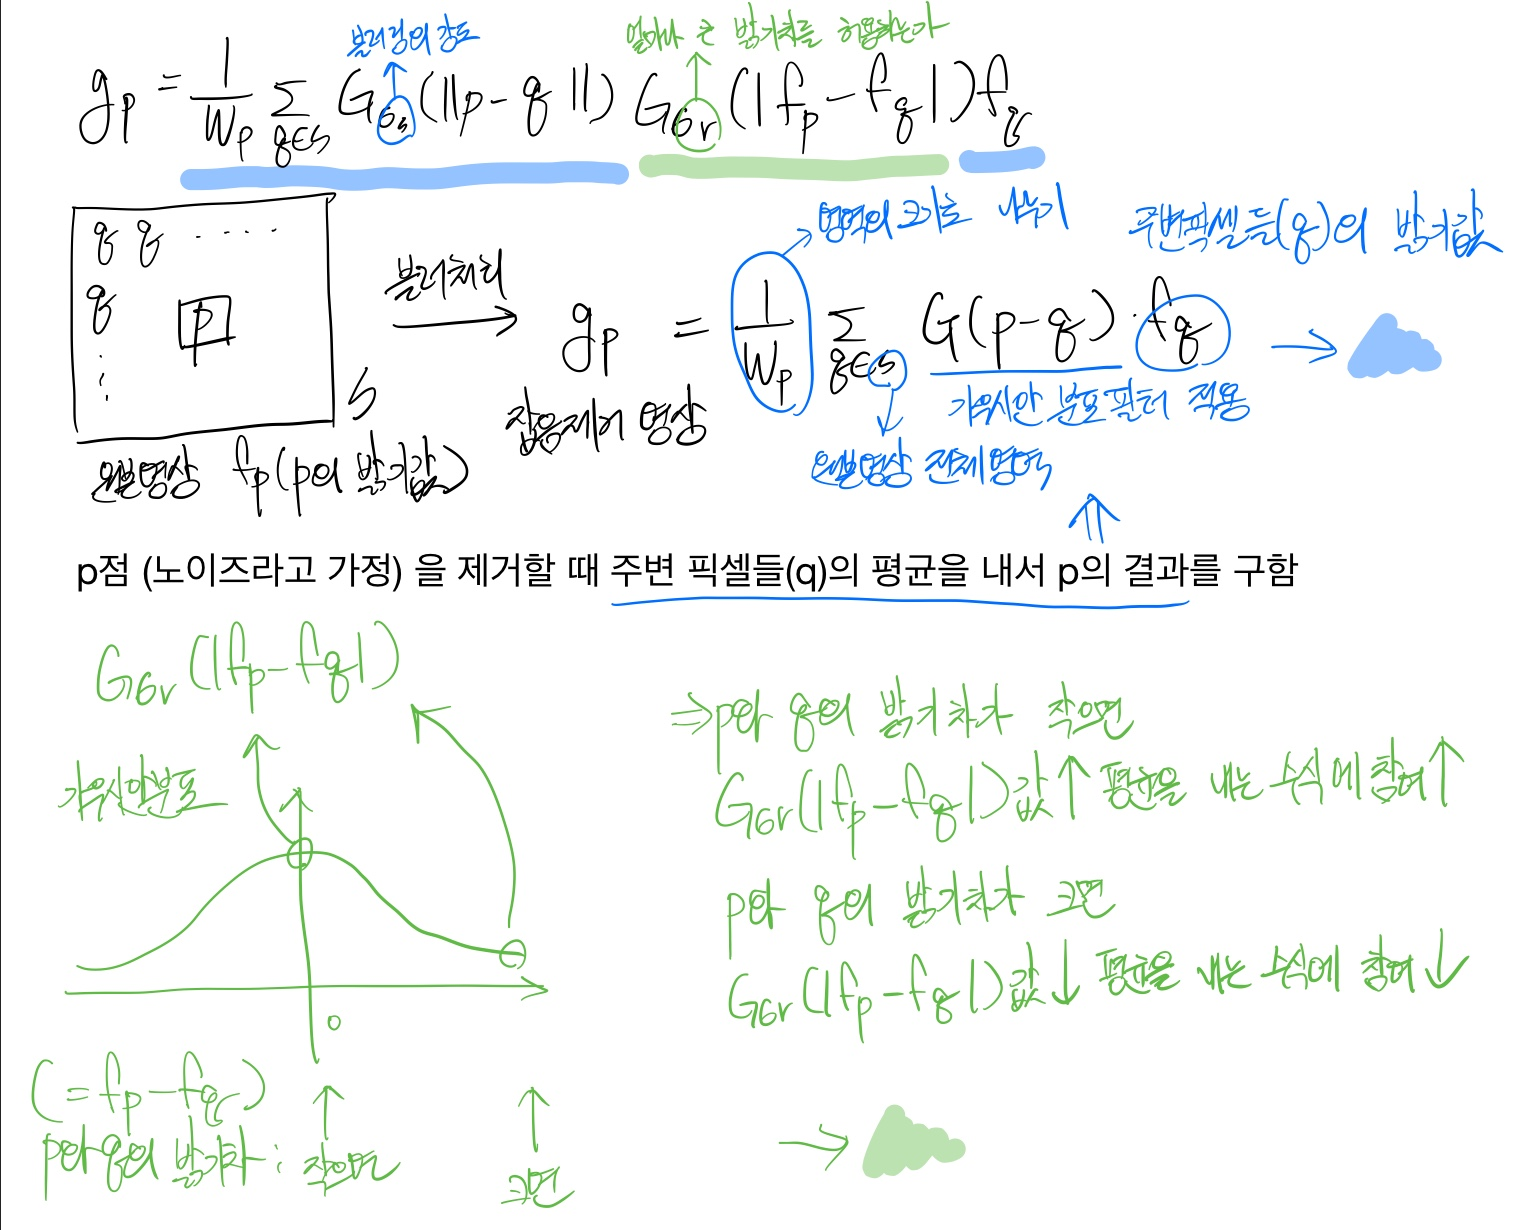 블러링의 강도
얼마나 큰 밝기차를 허용하는가
gₚ = 1/Wₚ Σ_{q∈S} G_{σs}(||p-q||) G_{σr}(|fₚ-f_q|)f_q
영역의 크기로 나누기
주변픽셀들(q)의 밝기값
q q ....
q
p
⋮
S
블러처리
gₚ = 1/Wₚ Σ_{q∈S} G(p-q)·f_q
가우시안 분포필터 적용
잡음제거 영상
원본영상 전체영역
원본영상 fₚ(p의 밝기값)
p점 (노이즈라고 가정) 을 제거할 때 주변 픽셀들(q)의 평균을 내서 p의 결과를 구함
G_{σr}(|fₚ-f_q|)
가우시안분포
0
(=fₚ-f_q)
p와 q의 밝기차 : 작으면
크면
⇒p와 q의 밝기차가 작으면
G_{σr}(|fₚ-f_q|)값↑ 평균을 내는 수식에 참여↑
p와 q의 밝기차가 크면
G_{σr}(|fₚ-f_q|)값↓ 평균을 내는 수식에 참여↓